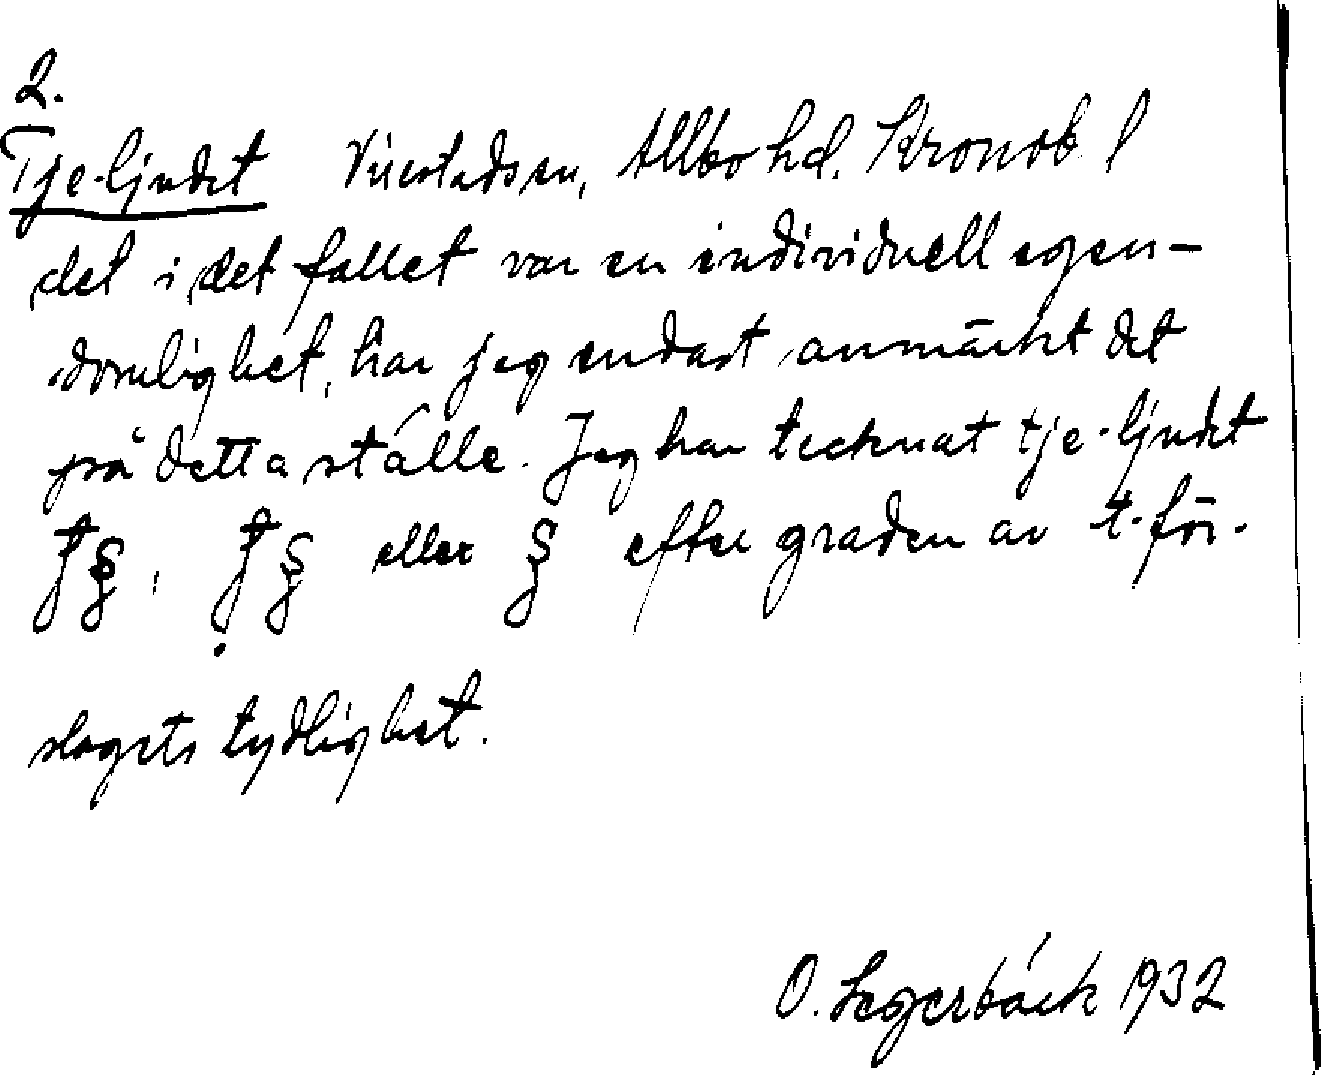 2.
Tje-ljudet Virestads sn, Allbo hd. Kronob l
det i det fallet var en individuell egen-
domlighet, har jag endast anmärkt det
på detta ställe. Jag har tecknat tje-ljudet
eller efter graden av t-för-
slagets tydlighet.
O. Segerbäck 1932